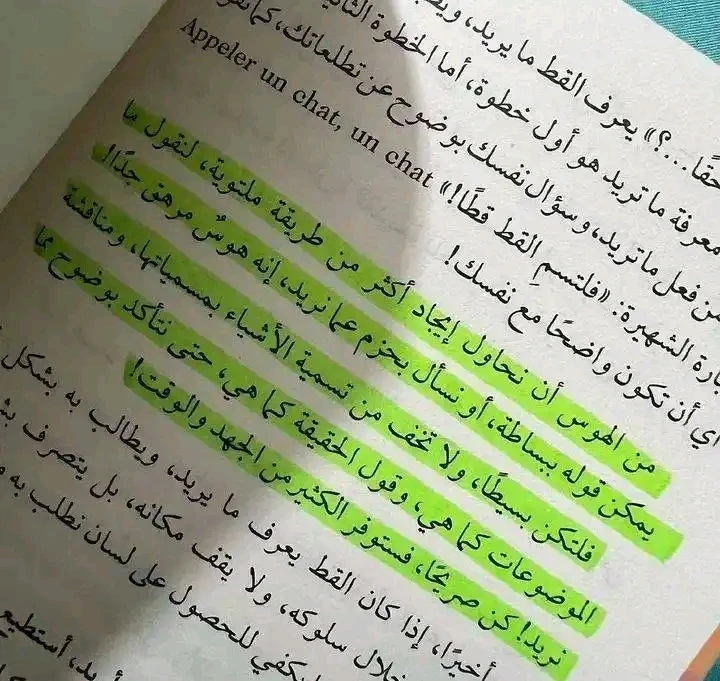 حقًا...؟» يعرف القط ما يريد،
معرفة ما تريد هو أول خطوة، أما الخطوة الثانية
من فعل ما تريد، وسؤال نفسك بوضوح عن تطلعاتك، كما
الشهيرة: «فلتسمِ القط قطًا!» Appeler un chat, un chat
أي أن تكون واضحًا مع نفسك!
من الهوس أن نحاول إيجاد أكثر من طريقة ملتوية، لنقول ما
يمكن قوله ببساطة، أو نسأل بحزم عما نريد، إنه هوسٌ مرهق جدًا!
فلتكن بسيطًا، ولا تخف من تسمية الأشياء بمسمياتها، ومناقشة
الموضوعات كما هي، وقول الحقيقة كما هي، حتى نتأكد بوضوح مما
نريد! كن صريحًا، فستوفر الكثير من الجهد والوقت!
أخيرًا، إذا كان القط يعرف ما يريد، ويطالب به بشكل
خلال سلوكه، ولا يقف مكانه، بل يتصرف
يكفي للحصول على لسان نطلب به
أستطيع